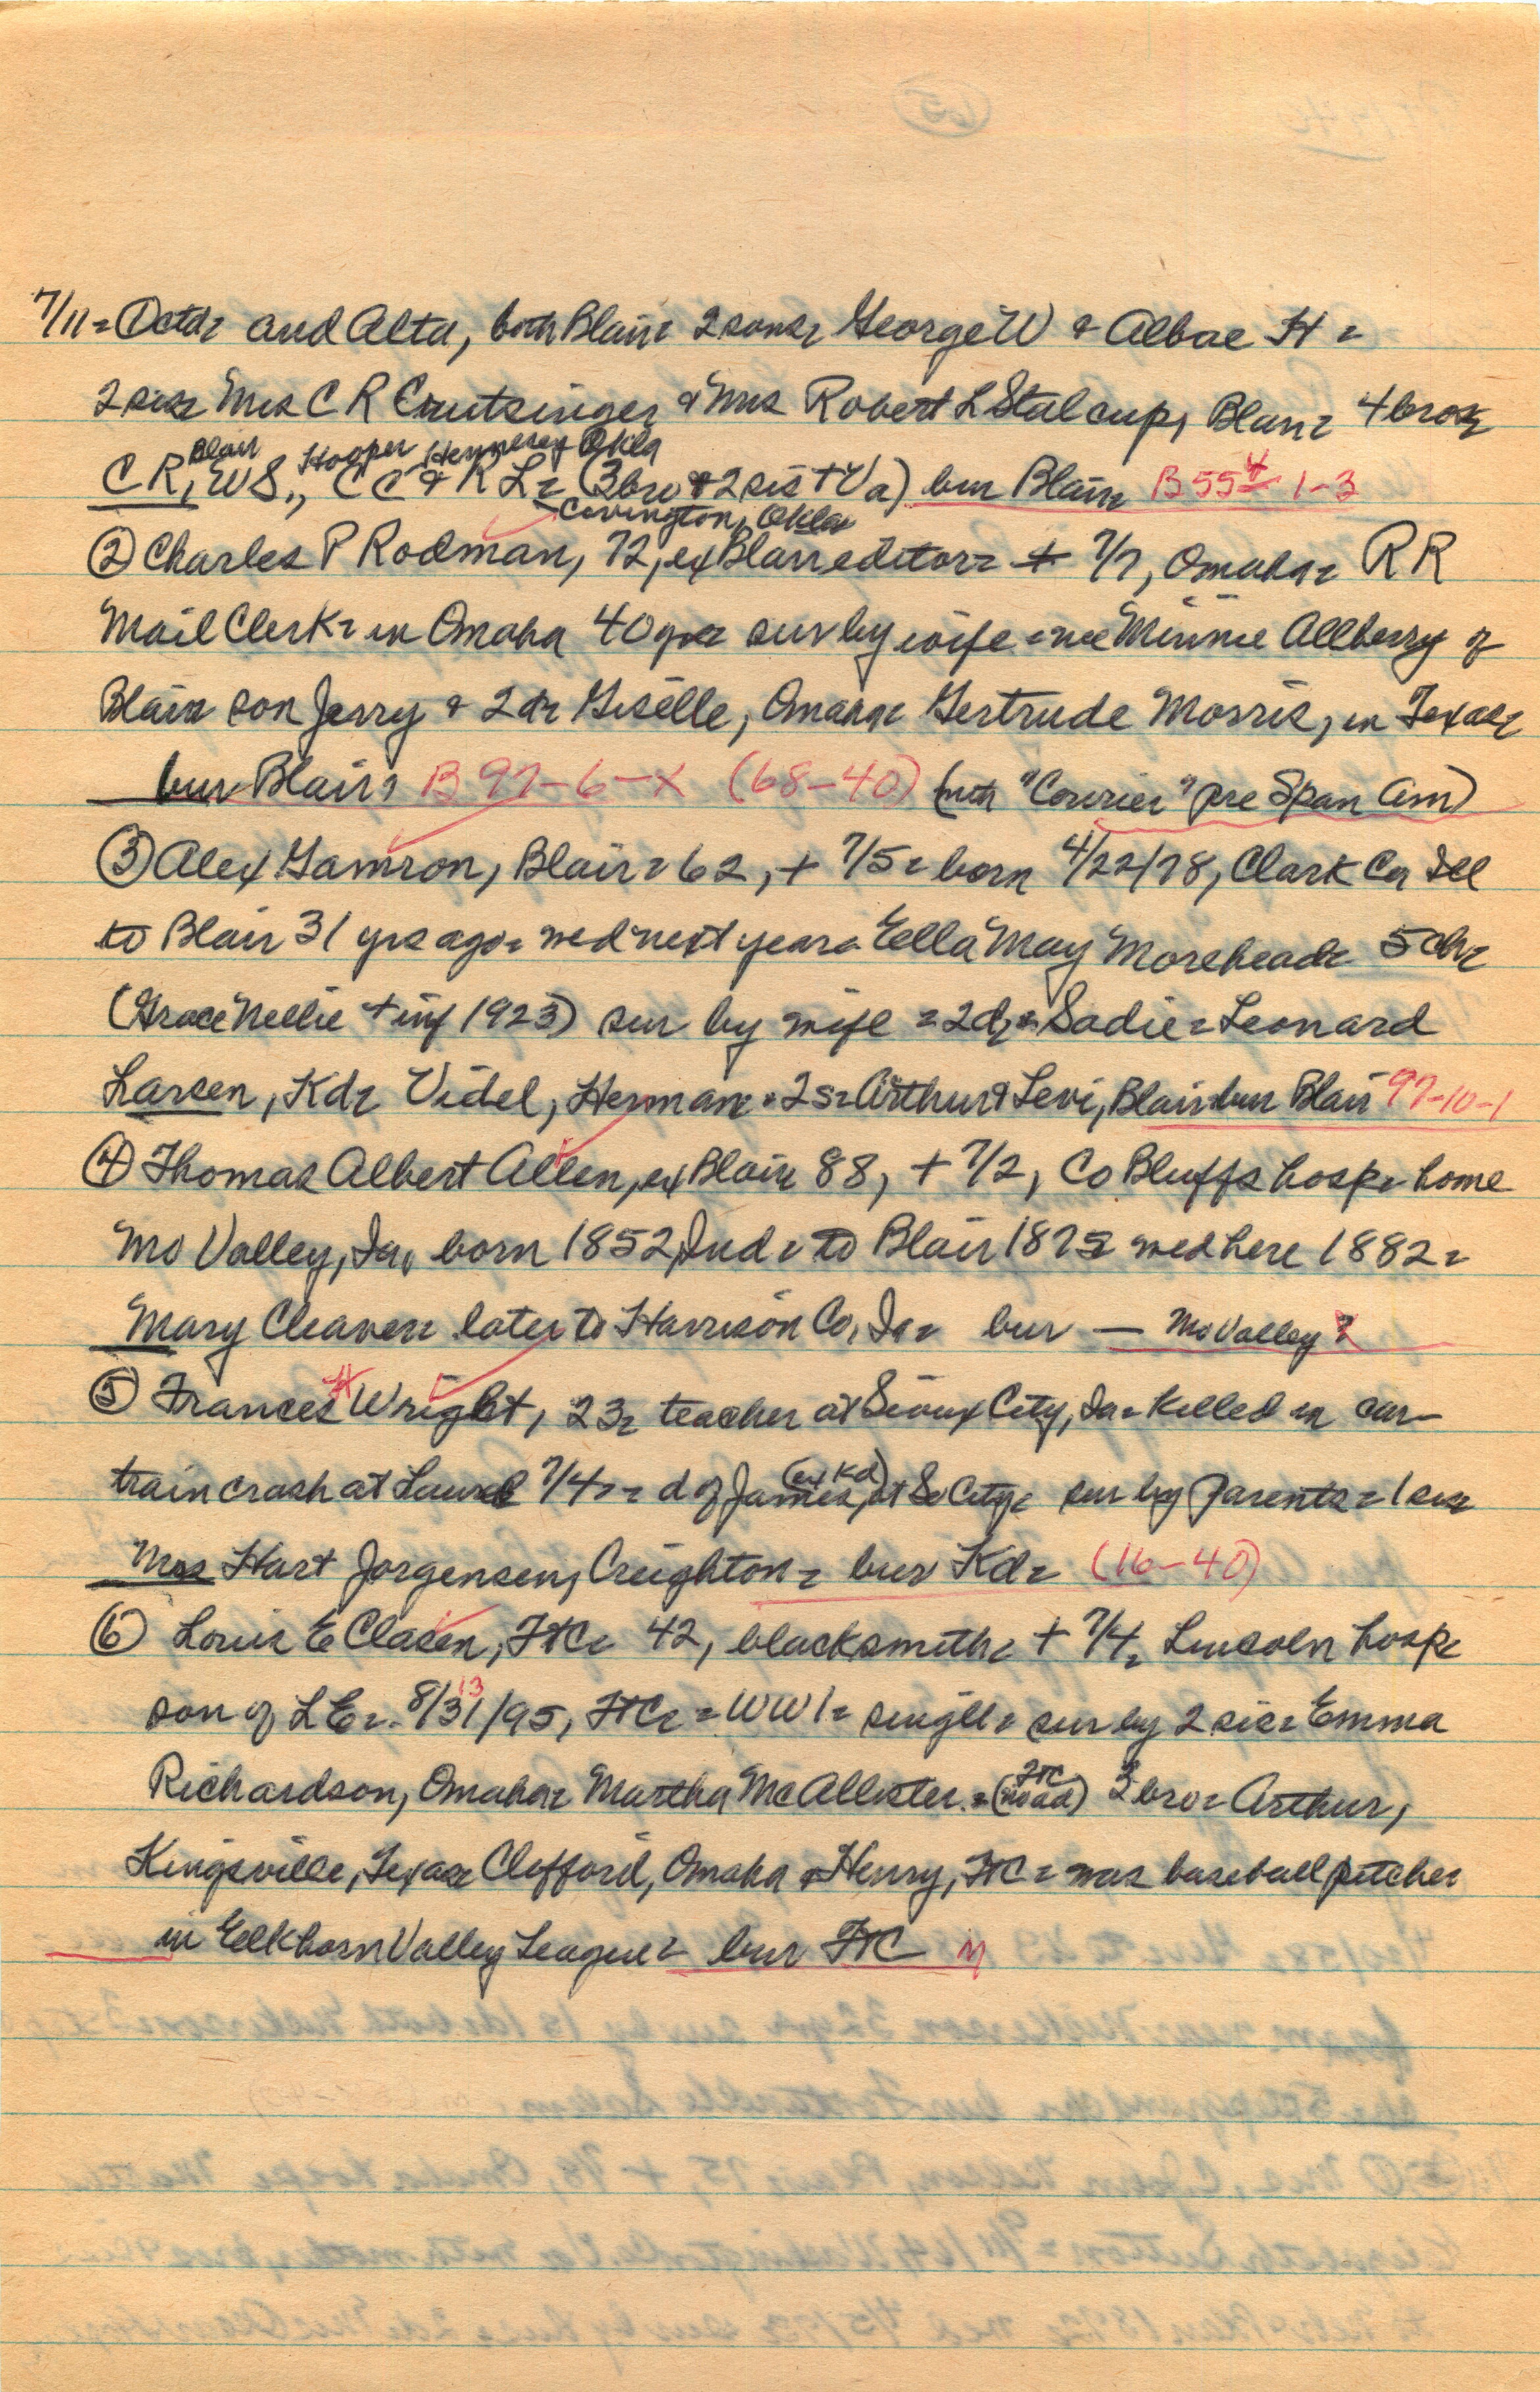 7/11 = Octa = and Alta, both Blair = 2 sons = George W & Albae H =
2 sis = Mrs C R Crutsinger & Mrs Robert L Stalcup, Blair = 4 bros =
Blair Hooper Hennesey Okla
C R, W S., C C & R L = (3 bro & 2 sis + Va) bur Blair = B 55 4 1-3
Covington, Okla
② Charles P Rodman, 72, ex Blair editor = + 7/7, Omaha = RR
Mail Clerk = in Omaha 40 yrs = sur by wife = nee Minnie Allberry of
Blair son Jerry & 2 d = Giselle, Omaha = Gertrude Morris, in Texas =
bur Blair = B 97-6-X (68-40) (with "Courier" pre Span Am)
③ Alex Gamron, Blair = 62, + 7/5 = born 4/22/78, Clark Co Ill
to Blair 31 yrs ago = wed next year = Ella May Morehead = 5 ch =
(Grace Nellie + inf 1923) sur by wife = 2 d = Sadie = Leonard
Larsen, Kd = Videl, Herman = 2 s = Arthur & Levi, Blair = bur Blair 97-10-1
④ Thomas Albert Allen, ex Blair = 88, + 7/2, Co Bluffs hosp = home
Mo Valley, Ia, born 1852, Ind = to Blair 1875 = wed here 1882 =
Mary Cleaver = later to Harrison Co, Ia = bur — Mo Valley ?
⑤ Frances H Wright, 23 = teacher at Sioux City, Ia = killed in car-
train crash at Laurel 7/4 = = d of James, (ex Kd) at So City = sur by parents = 1 sis =
Mrs Hart Jorgensen, Creighton = bur Kd = (16-40)
⑥ Louis E Clasen, FtC = 42, blacksmith = + 7/4 = Lincoln hosp =
son of L E = 8/31/95, 13 FtC = = WW1 = single = sur by 2 sis = Emma
Richardson, Omaha = Martha McAllister = (FtC) 3 bro = Arthur,
Kingsville, Texas = Clifford, Omaha & Henry, FtC = was baseball pitcher
in Elkhorn Valley League = bur FtC n